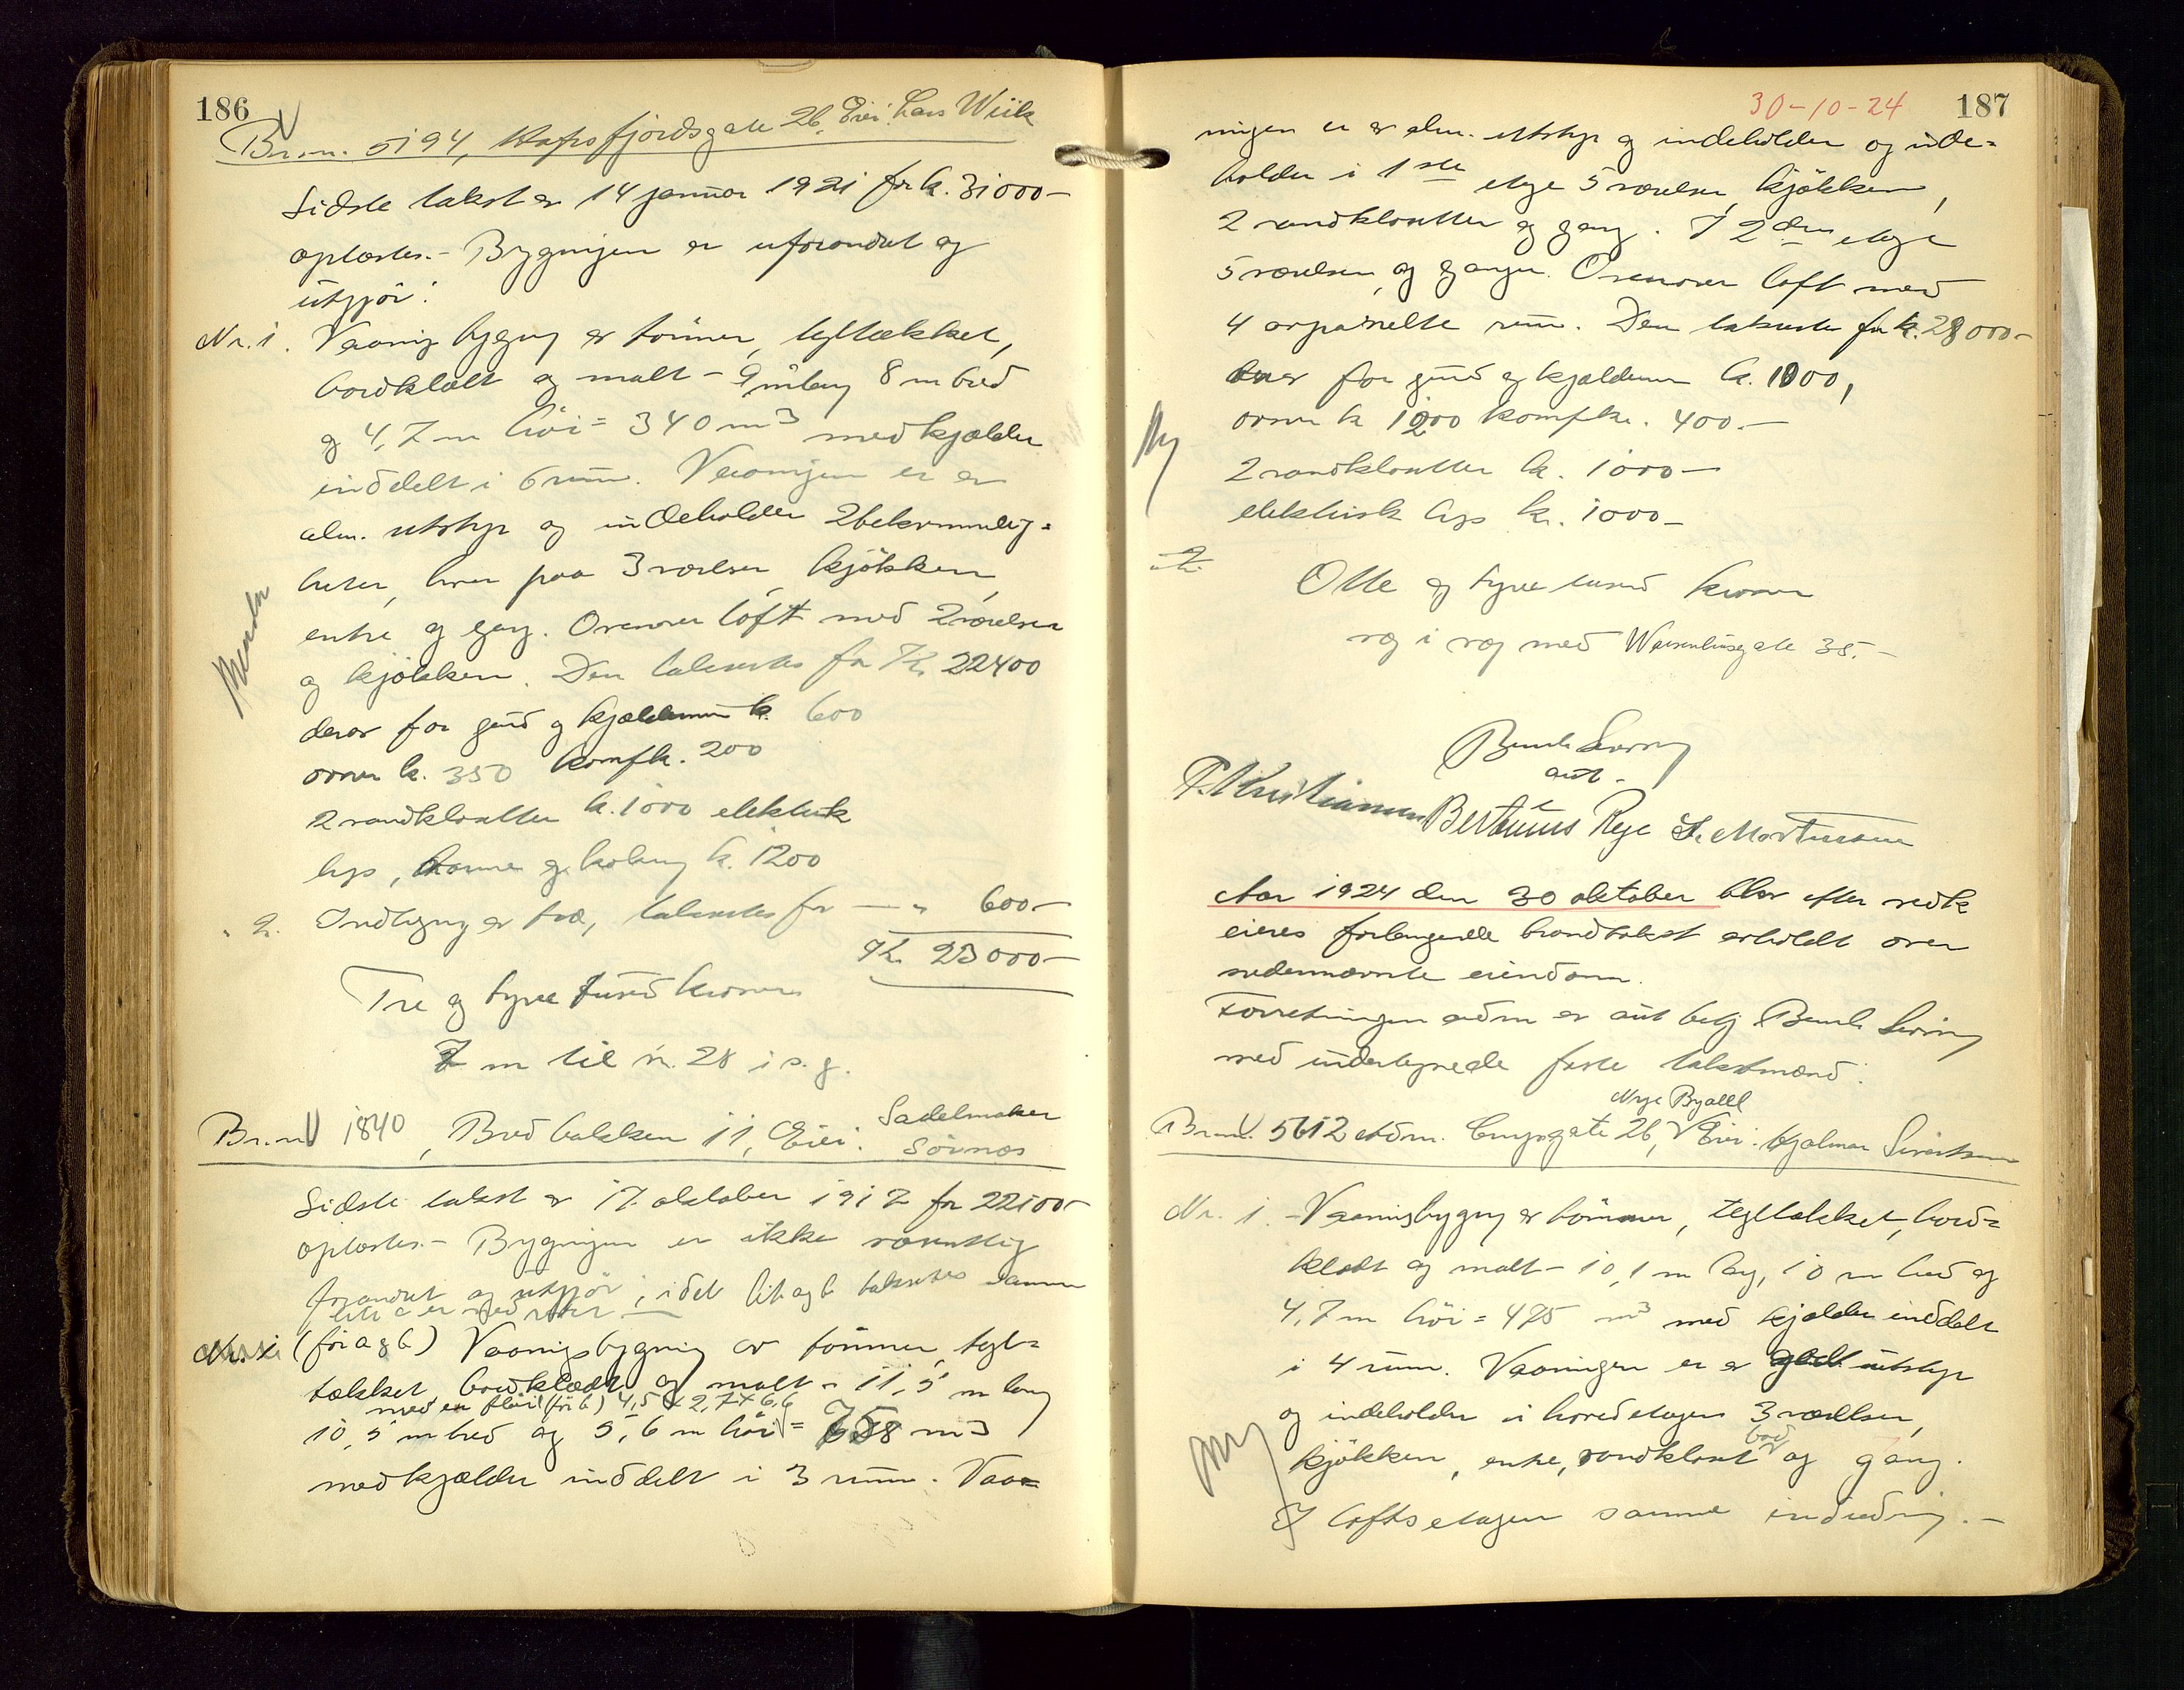 186
Br.nr. 5194, Hafrsfjordsgate 26, Eier: Lars Wiik
Sidste takst er 14 januar 1921 for kr. 31000-
oplæstes.- Bygningen er uforandret og
utgjør:
Nr. 1. Vaaningsbygning av tømmer, tegltækket,
bordklædt og malt - 9 m lang 8 m bred
og 4,7 m høi = 340 m3 med kjælder
inddelt i 6 rum. Vaaningen er av
alm. utstyr og indeholder 2 bekvemmelig=
heter, hver paa 3 værelser, kjøkken,
entre og gang. Ovenover loft med 2 værelser
og kjøkken. Den taksertes for Kr. 22400
derav for grund og kjældermur kr. 600
ovner kr. 350 komf kr. 200
2 vandklosetter kr. 1000 elektrisk
lys, varme og kokning kr. 1200
" 2. Indhegning av træ, taksertes for — " 600-
Kr. 23000-
Tre og tyve tusind kroner
7 m til nr. 28 i s. g.
Br.nr. 1840, Bredbakken 11, Eier: Sadelmaker
Sørnæs
Sidste takst er 17. oktober 1917 for 22100-
oplæstes.- Bygningen er ikke væsentlig
forandret og utgjør; idet lit a og b taksertes samme
lit c er
Nr. 1 (før a og b) Vaaningsbygning av tømmer, tegl=
tækket, bordklædt og malt - 11,5 m lang
med en fløi (før b) 4,5 x 2,7 x 6,6
10,5 m bred og 5,6 m høi = 758 m3
med kjælder inddelt i 3 rum. Vaa=
30-10-24 187
ningen er av alm. utstyr og indeholder og inde=
holder i 1ste etage 5 værelser, kjøkken,
2 vandklosetter og gang. I 2den etage
5 værelser og ganger. Ovenover loft med
4 avpanelte rum. Den taksertes for kr. 28000-
derav for grund og kjældermur kr. 1000,
ovner kr 1200 komf kr. 400.-
Ny
2 vandklosetter kr. 1000-
elektrisk lys kr. 1000-
Otte og tyve tusind kroner
væg i væg med Waisenhusgate 35.-
Bernh Severing
aut.
P. Kristiansen Bertinius Rege L. Mortensen
Aar 1924 den 30 oktober blev efter vedk
eieres forlangende brandtakst avholdt over
nedennævnte eiendom.
Forretningen adm av aut betj Bernh Severing
med undertegnede faste takstmænd:
Nye Byfjell
Br.nr. 5612 Adm. Cruysgate 26, Eier: Hjalmar Sivertsen
Nr. 1. Vaaningsbygning av tømmer, tegltækket, bord=
klædt og malt - 10,1 m lang, 10 m bred og
4,7 m høi = 475 m3 med kjælder inddelt
i 4 rum. Vaaningen er av godt utstyr
og indeholder i hovedetagen 3 værelser,
bad
kjøkken, entre, vandkloset og gang.
Ny
I loftsetagen samme indredning.-